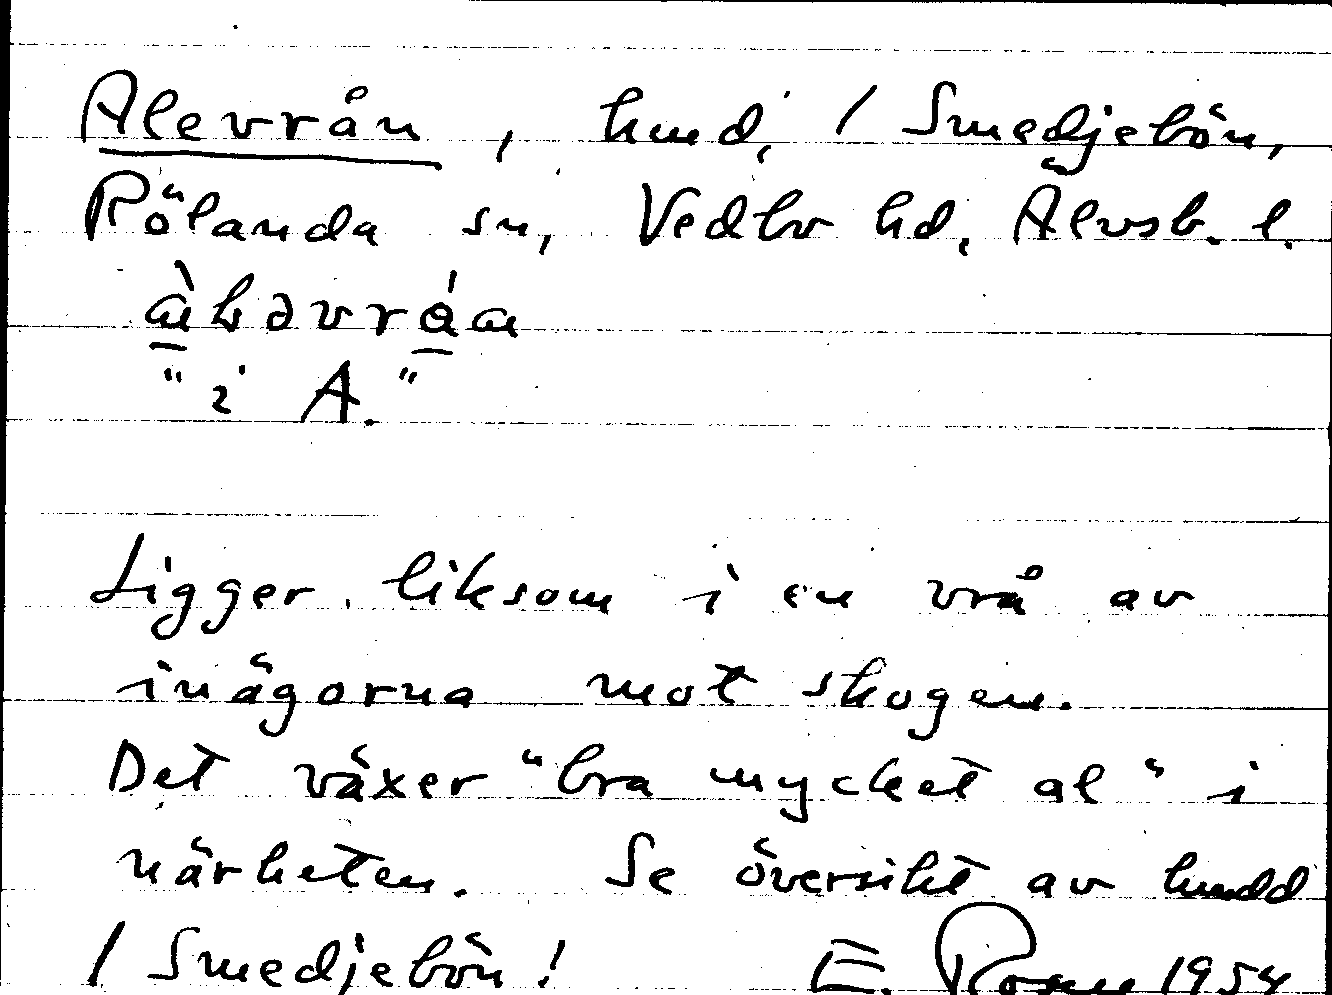 Alevrån, hmd, / Smedjebön,
Rölanda sn, Vedbo hd, Älvsb. l.
"i A."
Ligger liksom i en vrå av
inägorna mot skogen.
Det växer "bra mycket al" i
närheten. Se översikt av hmdd
/ Smedjebön! E. Rosell 1954